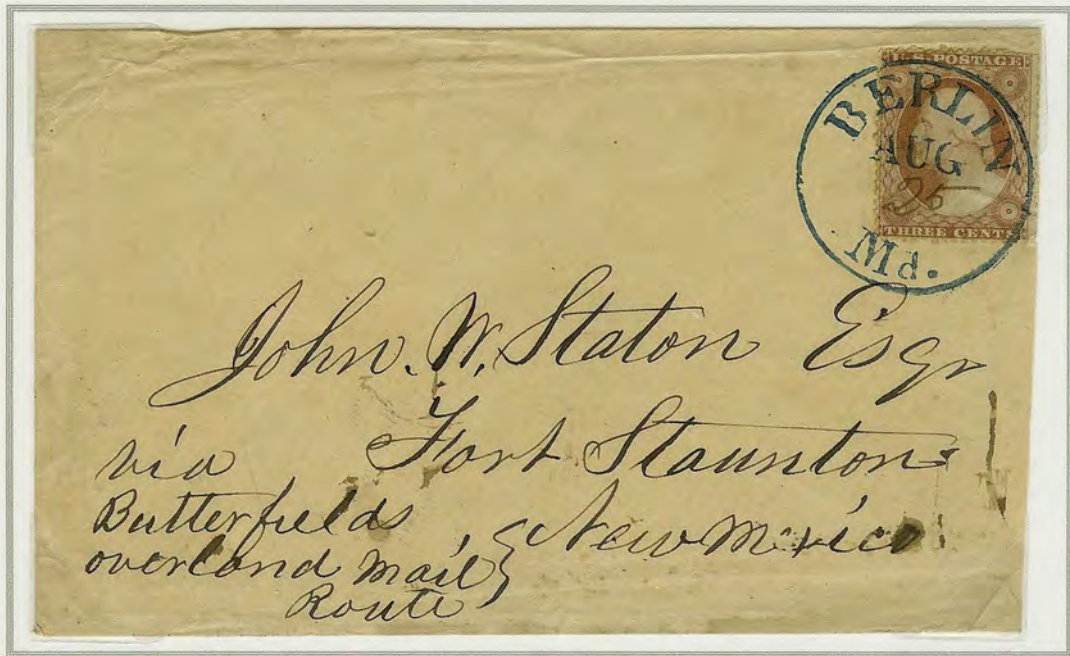 U.S. POSTAGE
THREE CENTS
BERLIN
AUG
25
Md.
John. W. Staton Esqr
Fort Staunton
New Mexico
via
Butterfields
overland Mail
Route